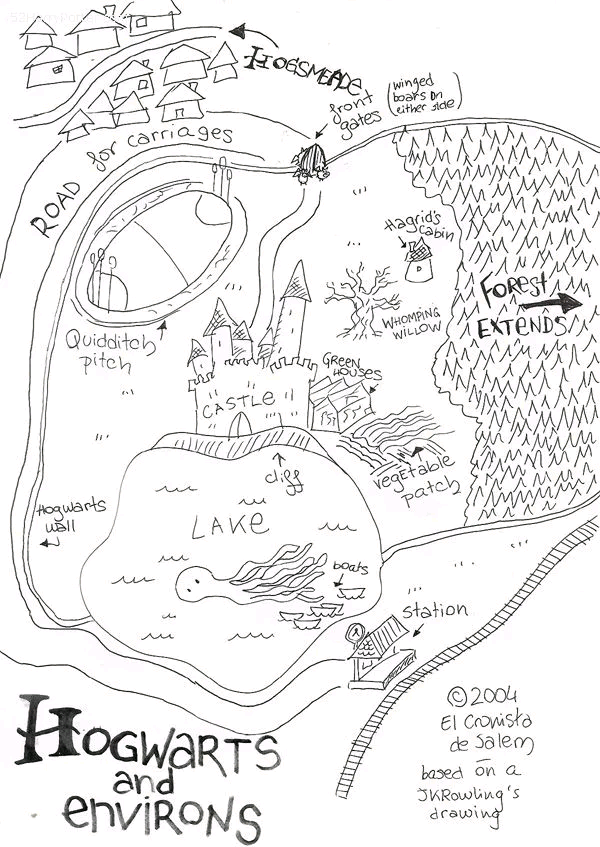 HOGSMEADE
front
gates
(winged
boars on
either side)
ROAD for carriages
Hagrid's
cabin
FOREST
EXTENDS
WHOMPING
WILLOW
Quidditch
pitch
GREEN
HOUSES
CASTLE
vegetable
patch
cliff
Hogwarts
wall
LAKE
boats
station
HOGWARTS
and
environs
©2004
El Cronista
de Salem
—
based on a
JKRowling's
drawing